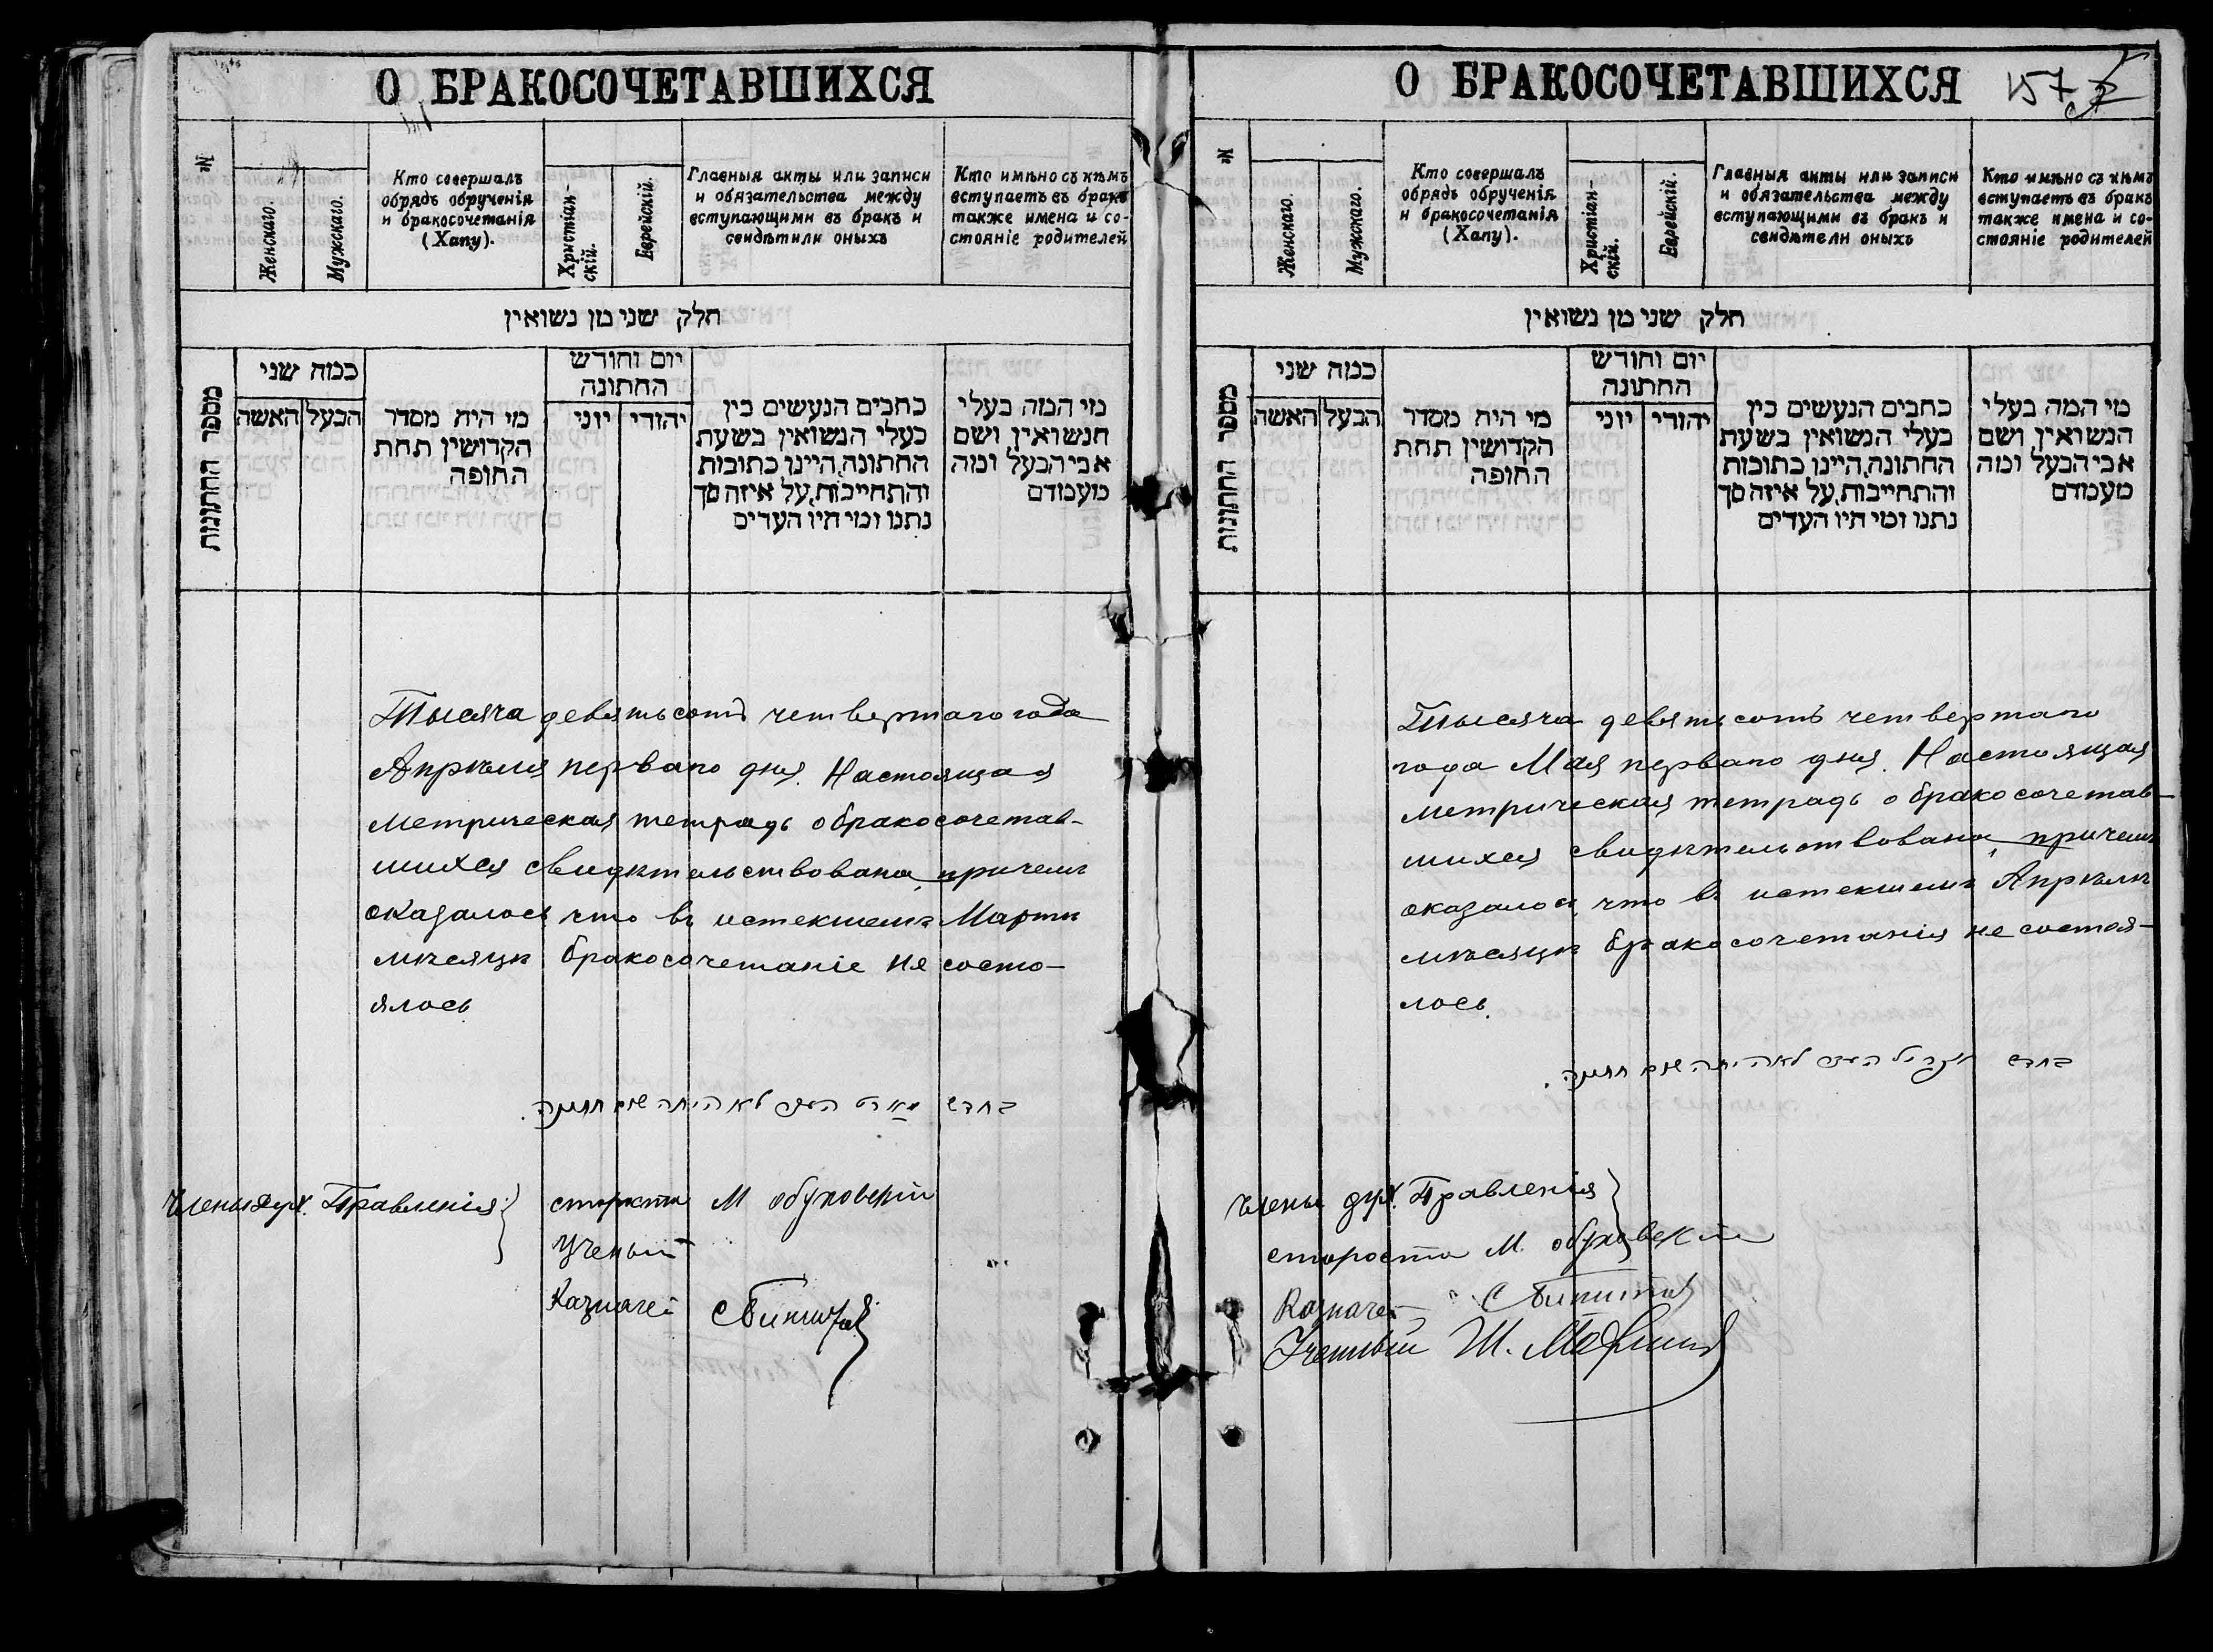 О БРАКОСОЧЕТАВШИХСЯ
№
Женскаго.
Мужскаго.
Кто совершалъ
обрядъ обрученія
и бракосочетанія
(Хапу).
Христіан-
скій.
Еврейскій.
Главныя акты или записи
и обязательства между
вступающими въ бракъ и
свидѣтили оныхъ
Кто имѣно съ кѣмъ
вступаетъ въ бракъ
также имена и со-
стояніе родителей
חלק שני מן נשואין
מספר החתונות
כמה שני
האשה
הבעל
מי היה מסדר
הקדושין תחת
החופה
יום וחודש
החתונה
יוני
יהודי
כתבים הנעשים בין
בעלי הנשואין בשעת
החתונה, היינו כתובות
והתחייבות, על איזה סך
נתנו ומי היו העדים
מי המה בעלי
הנשואין, ושם
אבי הבעל ומה
מעמדם
Тысяча девятьсотъ четвертаго года
Апрѣля перваго дня. Настоящая
метрическая тетрадь о бракосочетав-
шихся свидѣтельствована, причемъ
оказалось, что въ истекшемъ Мартѣ
мѣсяцѣ бракосочетаніе не состо-
ялось
בחדש מארט העבר לא היתה שום חתונה.
Члены Дух. Правленія
староста М Обуховскій
Ученый
Казначей
О БРАКОСОЧЕТАВШИХСЯ
157
№
Женскаго.
Мужскаго.
Кто совершалъ
обрядъ обрученія
и бракосочетанія
(Хапу).
Христіан-
скій.
Еврейскій.
Главныя акты или записи
и обязательства между
вступающими въ бракъ и
свидѣтели оныхъ
Кто имѣно съ кѣмъ
вступаетъ въ бракъ
также имена и со-
стояніе родителей
חלק שני מן נשואין
מספר החתונות
כמה שני
האשה
הבעל
מי היה מסדר
הקדושין תחת
החופה
יום וחודש
החתונה
יוני
יהודי
כתבים הנעשים בין
בעלי הנשואין בשעת
החתונה, היינו כתובות
והתחייבות, על איזה סך
נתנו ומי היו העדים
מי המה בעלי
הנשואין, ושם
אבי הבעל ומה
מעמדם
Тысяча девятьсотъ четвертаго
года Мая перваго дня. Настоящая
метрическая тетрадь о бракосочетав-
шихся свидѣтельствована, причемъ
оказалось, что въ истекшемъ Апрѣлѣ
мѣсяцѣ бракосочетанія не состоя-
лось.
בחדש אפריל העבר לא היתה שום חתונה.
Члены дух. Правленія
староста М. Обуховскій
Казначей
Ученый Ш.